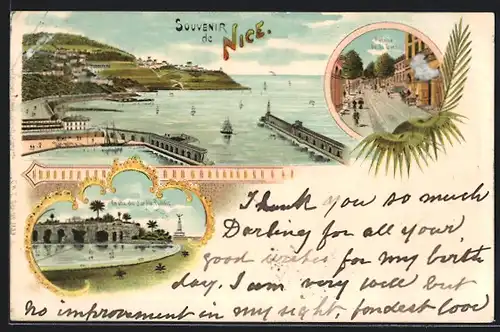 SOUVENIR
de
NICE.
Thank you so much
Darling for all your
good wishes for my birth
day. I am very well but
no improvement in my sight. fondest love